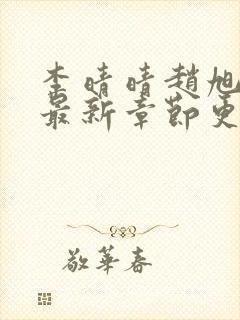 李晴晴趙旭
最新章節更
敬華春